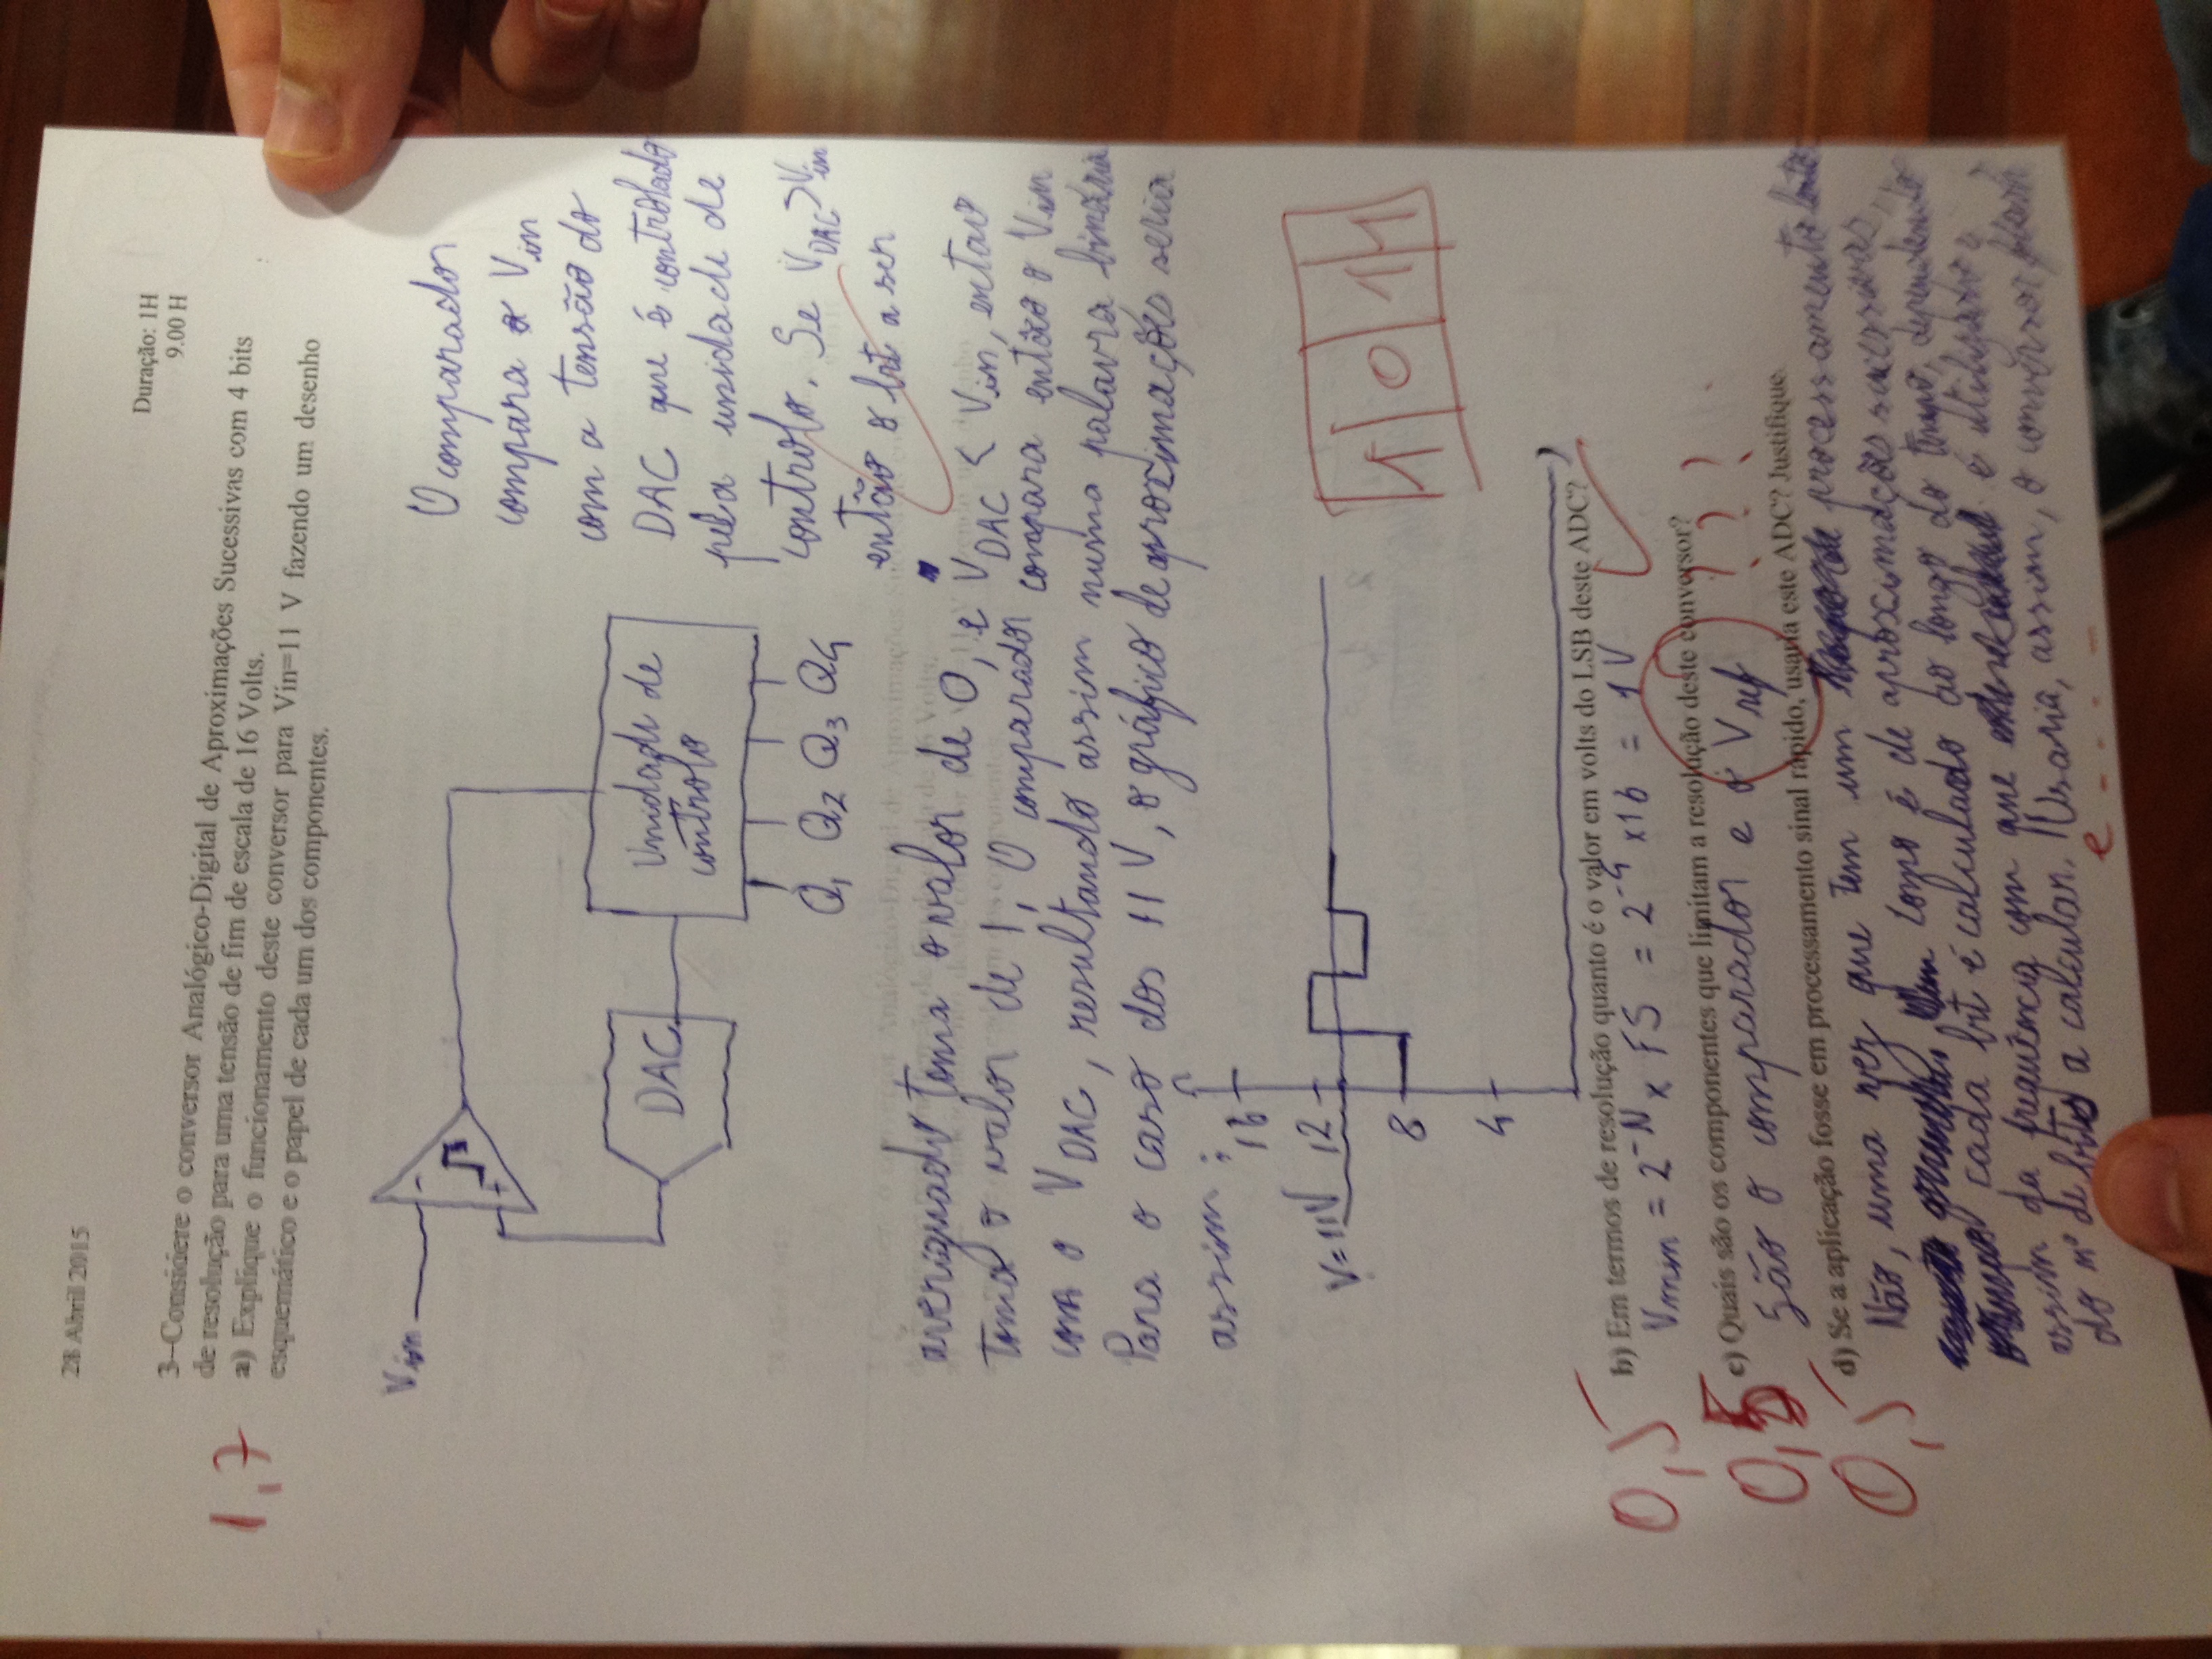 28 Abril 2015
Duração: 1H
9.00 H
1,7
3–Considere o conversor Analógico-Digital de Aproximações Sucessivas com 4 bits
de resolução para uma tensão de fim de escala de 16 Volts.
a) Explique o funcionamento deste conversor para Vin=11 V fazendo um desenho
esquemático e o papel de cada um dos componentes.
Vin
-
+
DAC
Unidade de
controlo
Q1 Q2 Q3 Q4
O comparador
compara o Vin
com a tensão do
DAC que é controlado
pela unidade de
controlo. Se VDAC>Vin
então o bit a ser
averiguado toma o valor de 0, e VDAC < Vin, entao
toma o valor de 1, O comparador compara então o Vin
com o VDAC, resultando assim numa palavra binária
Para o caso dos 11 V, o gráfico de aproximações seria
assim :
16
12
V=11V
8
4
1 0 1 1
0,5
b) Em termos de resolução quanto é o valor em volts do LSB deste ADC?
Vmin = 2^-N x FS = 2^-4 x16 = 1 V
c) Quais são os componentes que limitam a resolução deste conversor?
São o comparador e o Vref
? ? ?
0,5
d) Se a aplicação fosse em processamento sinal rápido, usaria este ADC? Justifique.
Não, uma vez que tem um processamento lento
Como é de aproximações sucessivas,
cada bit é calculado ao longo do tempo, dependendo
assim da frequência com que é utilizado e
do nº de bits a calcular. Usaria, assim, o conversor flash
e - - - -